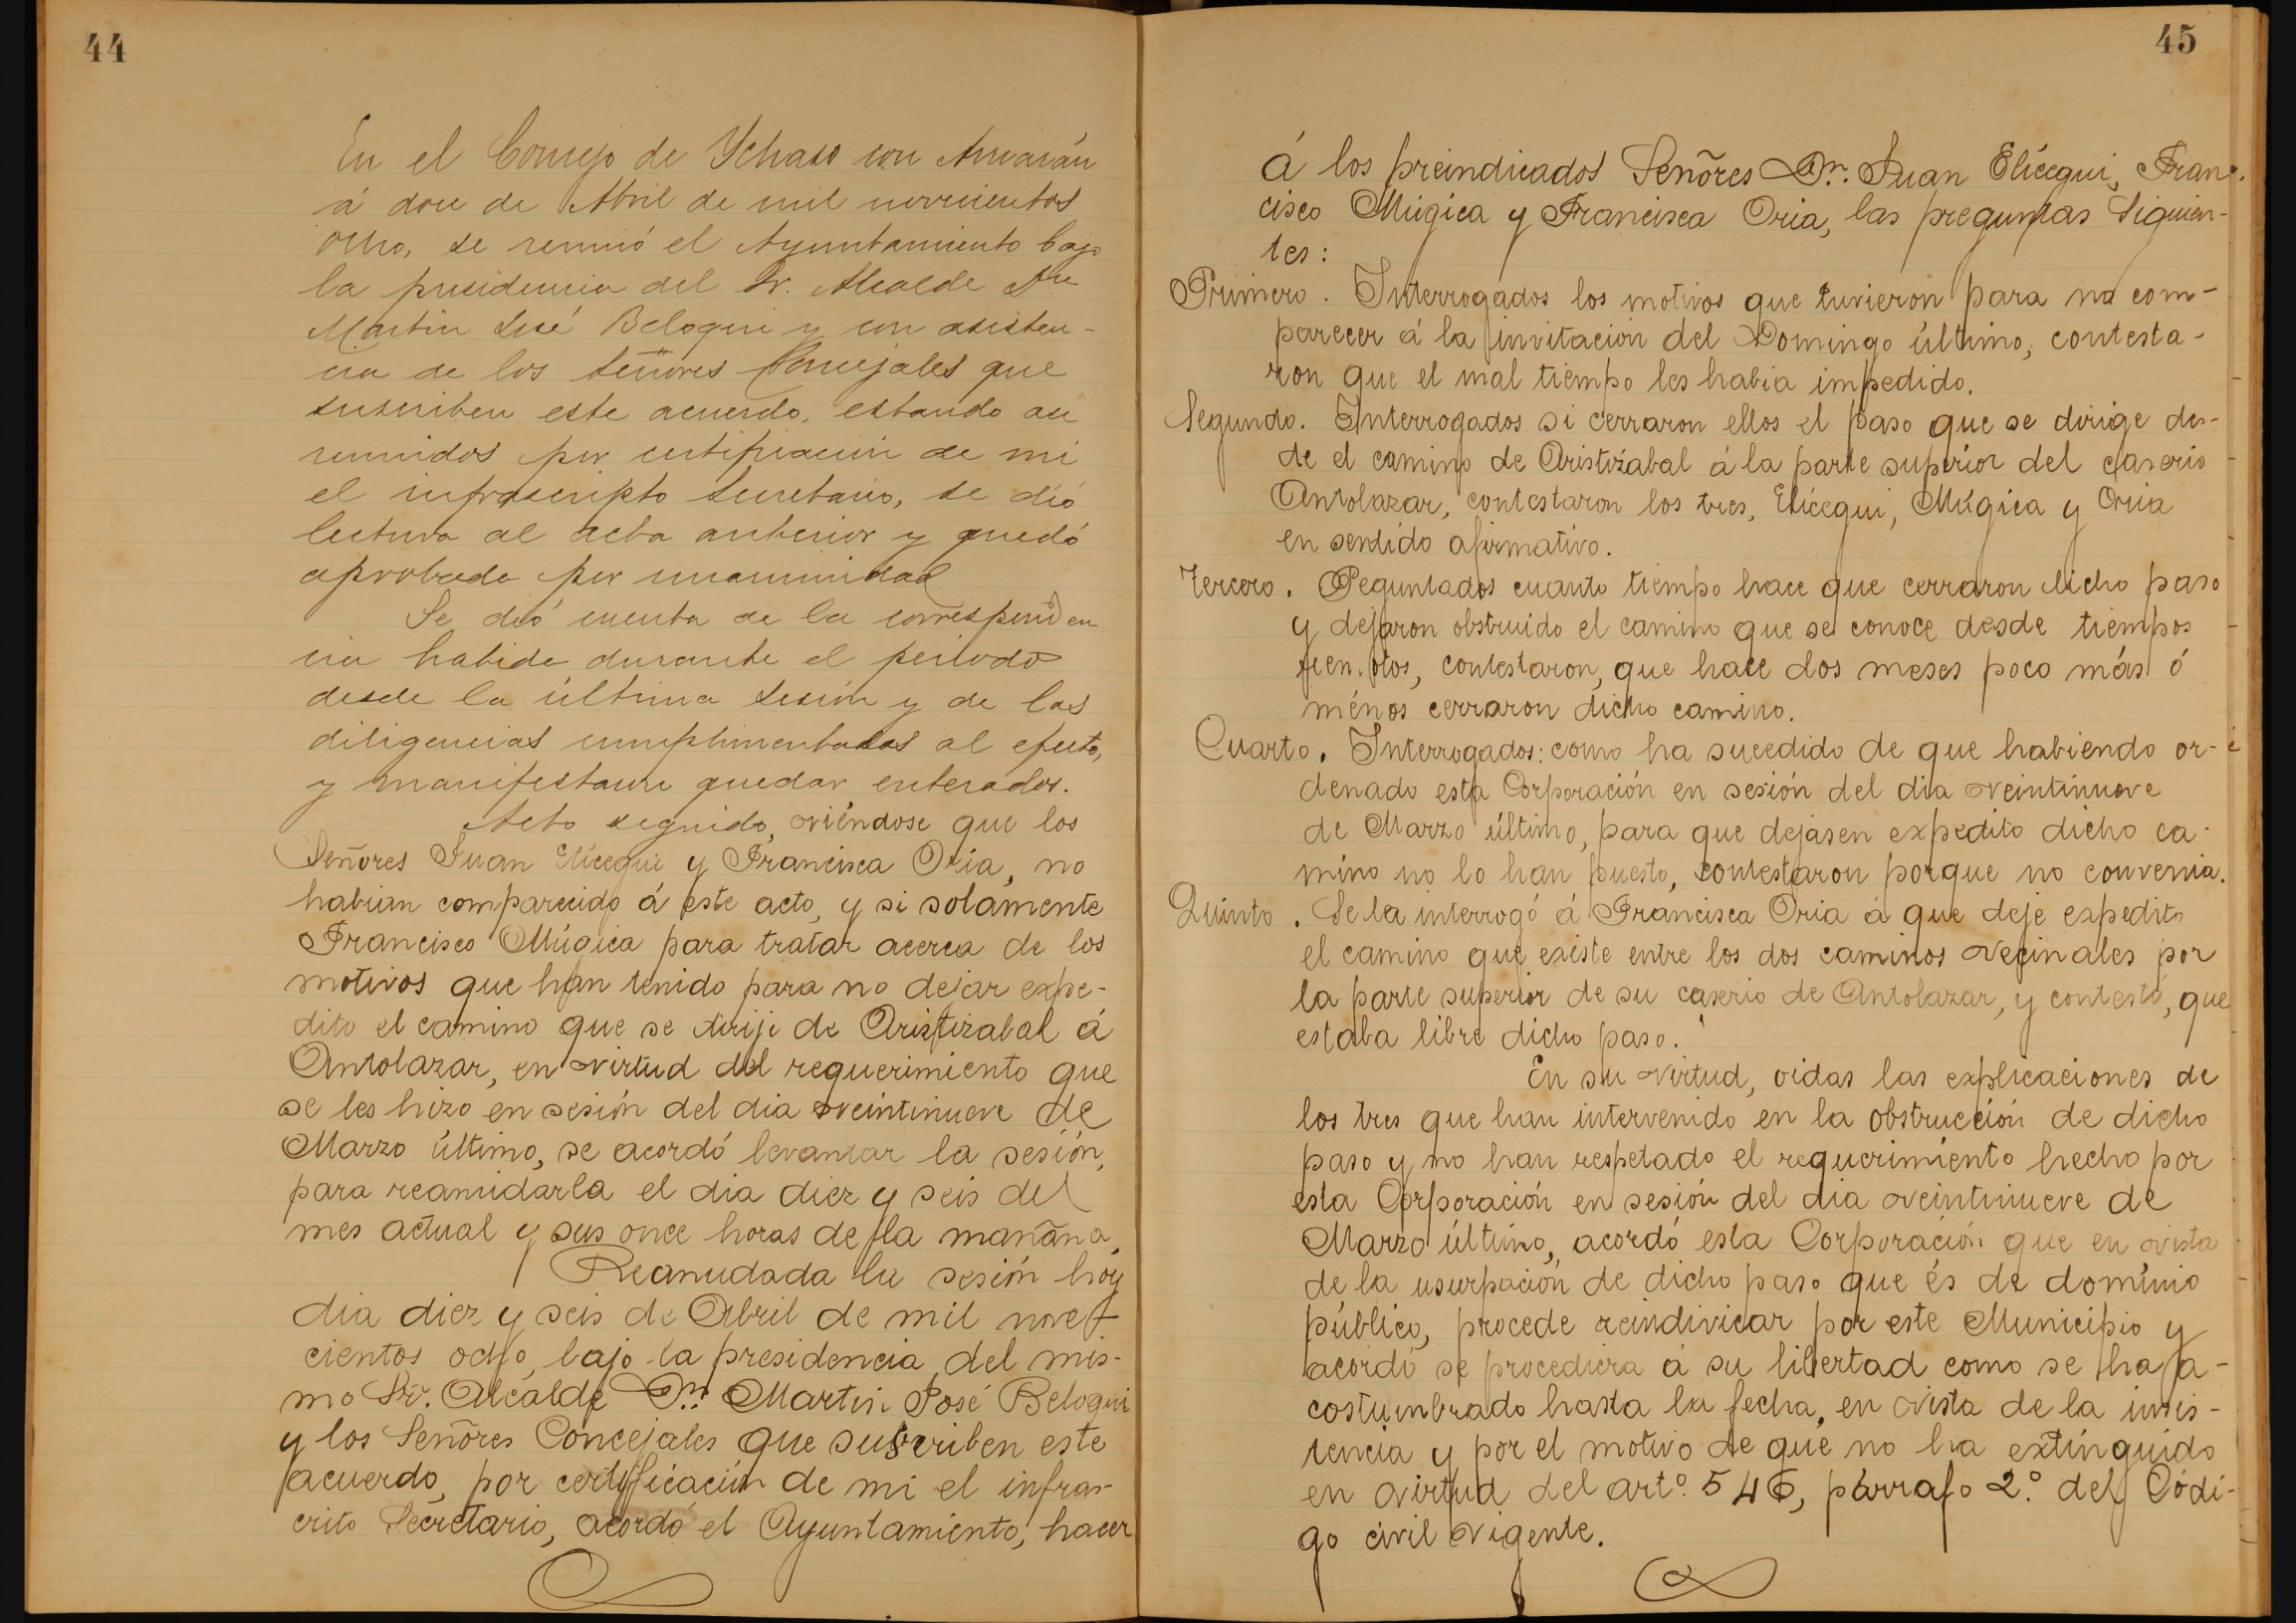 44
En el Concejo de Ychaso con Arriarán
á doce de Abril de mil novecientos
ocho, se reunió el Ayuntamiento bajo
la presidencia del Sr. Alcalde Dn
Martin José Beloqui y con asisten-
cia de los Señores Concejales que
suscriben este acuerdo, estando asi
reunidos por certificación de mi
el infrascripto Secretario, se dió
lectura al acta anterior y quedó
aprobada por unanimidad
Se dió cuenta de la corresponden
cia habida durante el periodo
desde la última sesión y de las
diligencias cumplimentadas al efecto,
y manifestaron quedar enterados.
Acto seguido, viéndose que los
Señores Juan Elícegui y Francisca Oria, no
habian comparecido á este acto, y si solamente
Francisco Múgica para tratar acerca de los
motivos que han tenido para no dejar expe-
dito el camino que se dirije de Aristizabal á
Antolazar, en virtud del requerimiento que
se les hizo en sesión del dia veintinueve de
Marzo último, se acordó levantar la sesión,
para reanudarla el dia diez y seis del
mes actual y sus once horas de la mañana.
Reanudada la sesión hoy
dia diez y seis de Abril de mil nove-
cientos ocho, bajo la presidencia del mis-
mo Sr. Alcalde Dn. Martin José Beloqui
y los Señores Concejales que suscriben este
acuerdo, por certificación de mi el infras-
crito Secretario, acordó el Ayuntamiento, hacer
45
á los preindicados Señores Dn. Juan Elícegui, Fran-
cisco Múgica y Francisca Oria, las preguntas siguien-
tes:
Primero. Interrogados los motivos que tuvieron para no com-
parecer á la invitación del Domingo último, contesta-
ron que el mal tiempo les habia impedido.
Segundo. Interrogados si cerraron ellos el paso que se dirige des-
de el camino de Aristizabal á la parte superior del caserio
Antolazar, contestaron los tres, Elícegui, Múgica y Oria
en sentido afirmativo.
Tercero. Peguntados cuanto tiempo hace que cerraron dicho paso
y dejaron obstruido el camino que se conoce desde tiempos
remotos, contestaron, que hace dos meses poco más ó
ménos cerraron dicho camino.
Cuarto. Interrogados: como ha sucedido de que habiendo or-
denado esta Corporación en sesión del dia veintinueve
de Marzo último, para que dejasen expedito dicho ca-
mino no lo han puesto, contestaron porque no convenia.
Quinto. Se la interrogó á Francisca Oria á que deje expedito
el camino que existe entre los dos caminos vecinales por
la parte superior de su caserio de Antolazar, y contestó, que
estaba libre dicho paso.
En su virtud, oidas las explicaciones de
los tres que han intervenido en la obstrucción de dicho
paso y no han respetado el requerimiento hecho por
esta Corporación en sesión del dia veintinueve de
Marzo último, acordó esta Corporación que en vista
de la usurpación de dicho paso que és de dominio
público, procede reindivicar por este Municipio y
acordó se procediera á su libertad como se ha a-
costumbrado hasta la fecha, en vista de la insis-
tencia y por el motivo de que no ha extinguido
en virtud del artº. 546, párrafo 2.º del Códi-
go civil vigente.